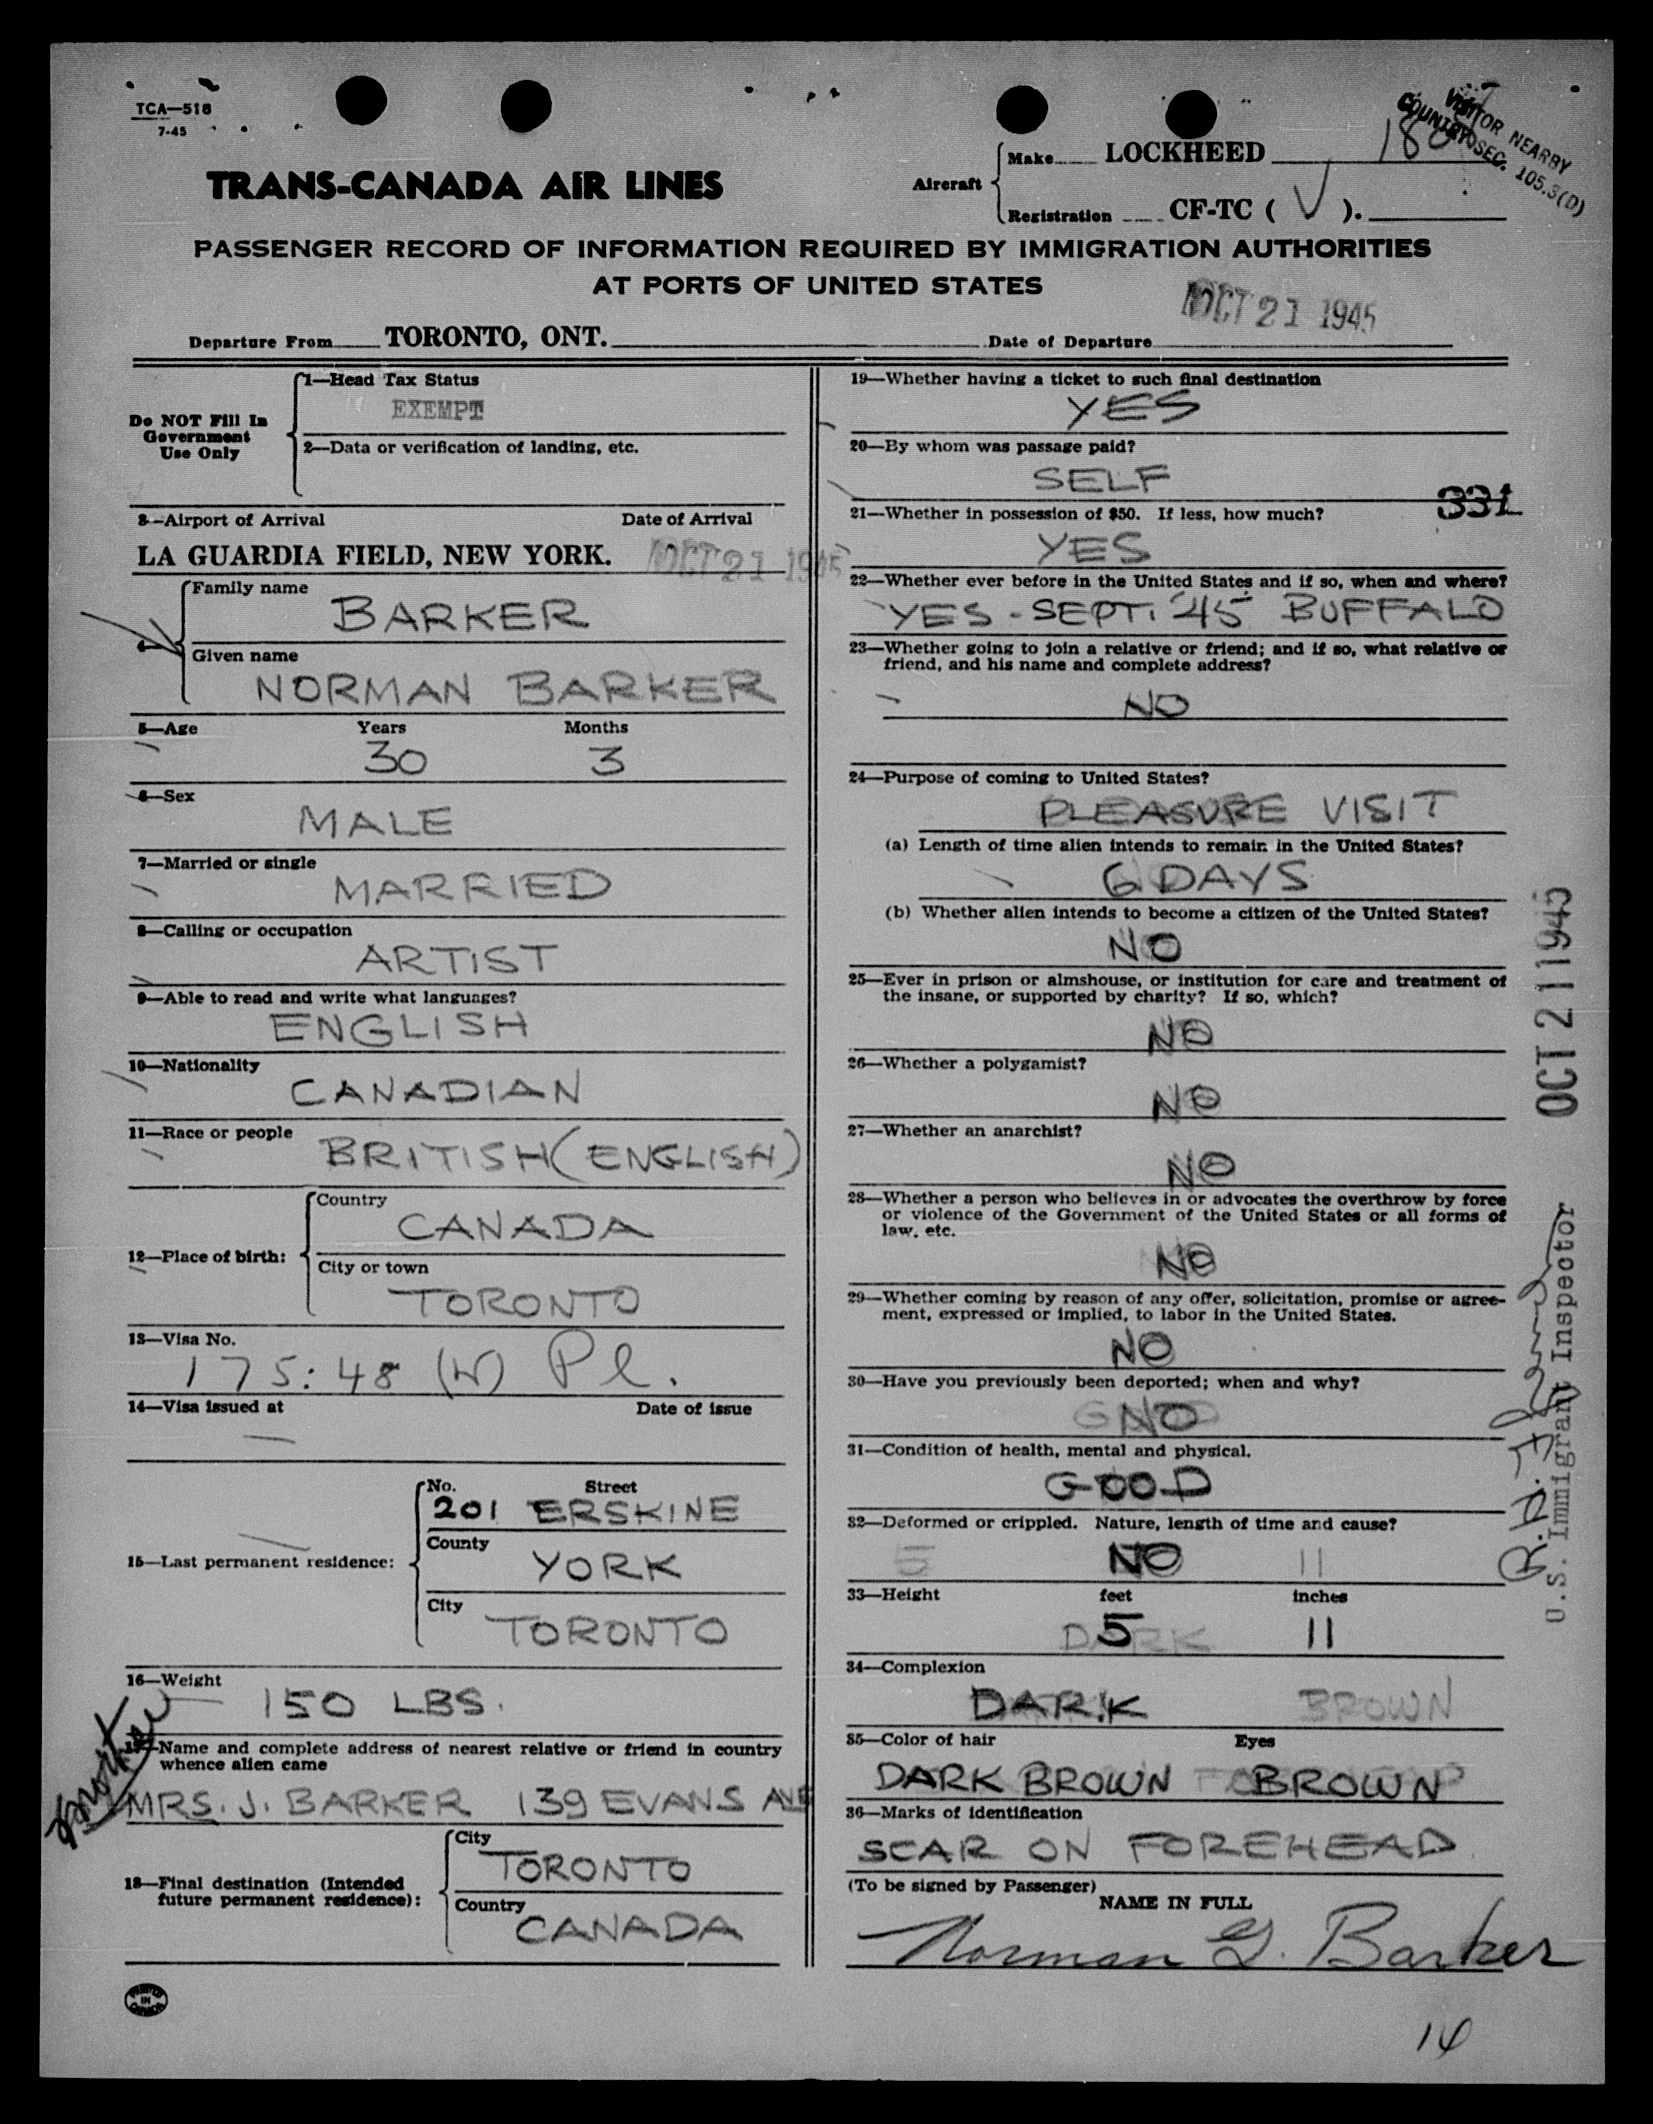 TCA—518
7-45
VISITOR NEARBY
COUNTRY SEC. 105.3(D)
TRANS-CANADA AIR LINES
Aircraft
Make LOCKHEED
Registration CF-TC ( V ).
PASSENGER RECORD OF INFORMATION REQUIRED BY IMMIGRATION AUTHORITIES
AT PORTS OF UNITED STATES
OCT 21 1945
Departure From TORONTO, ONT. Date of Departure
Do NOT Fill In
Government
Use Only
1—Head Tax Status
EXEMPT
2—Data or verification of landing, etc.
3—Airport of Arrival Date of Arrival
LA GUARDIA FIELD, NEW YORK. OCT 21 1945
4—
Family name
BARKER
Given name
NORMAN BARKER
5—Age Years Months
30 3
6—Sex
MALE
7—Married or single
MARRIED
8—Calling or occupation
ARTIST
9—Able to read and write what languages?
ENGLISH
10—Nationality
CANADIAN
11—Race or people
BRITISH (ENGLISH)
12—Place of birth:
Country
CANADA
City or town
TORONTO
13—Visa No.
175:48 (W) Pl.
14—Visa issued at Date of issue
—
15—Last permanent residence:
No. Street
201 ERSKINE
County
YORK
City
TORONTO
16—Weight
150 LBS.
mother
17—Name and complete address of nearest relative or friend in country
whence alien came
MRS. J. BARKER 139 EVANS AVE
18—Final destination (Intended
future permanent residence):
City
TORONTO
Country
CANADA
PRINTED
IN
CANADA
19—Whether having a ticket to such final destination
YES
20—By whom was passage paid?
SELF
331
21—Whether in possession of $50. If less, how much?
YES
22—Whether ever before in the United States and if so, when and where?
YES - SEPT. '45 BUFFALO
23—Whether going to join a relative or friend; and if so, what relative or
friend, and his name and complete address?
NO
24—Purpose of coming to United States?
PLEASURE VISIT
(a) Length of time alien intends to remain in the United States?
6 DAYS
(b) Whether alien intends to become a citizen of the United States?
NO
25—Ever in prison or almshouse, or institution for care and treatment of
the insane, or supported by charity? If so, which?
NO
26—Whether a polygamist?
NO
27—Whether an anarchist?
NO
28—Whether a person who believes in or advocates the overthrow by force
or violence of the Government of the United States or all forms of
law, etc.
NO
29—Whether coming by reason of any offer, solicitation, promise or agree-
ment, expressed or implied, to labor in the United States.
NO
30—Have you previously been deported; when and why?
NO
31—Condition of health, mental and physical.
GOOD
32—Deformed or crippled. Nature, length of time and cause?
5 NO 11
33—Height feet inches
5 11
34—Complexion
DARK BROWN
35—Color of hair Eyes
DARK BROWN BROWN
36—Marks of identification
SCAR ON FOREHEAD
(To be signed by Passenger)
NAME IN FULL
Norman G. Barker
OCT 21 1945
U.S. Immigrant Inspector